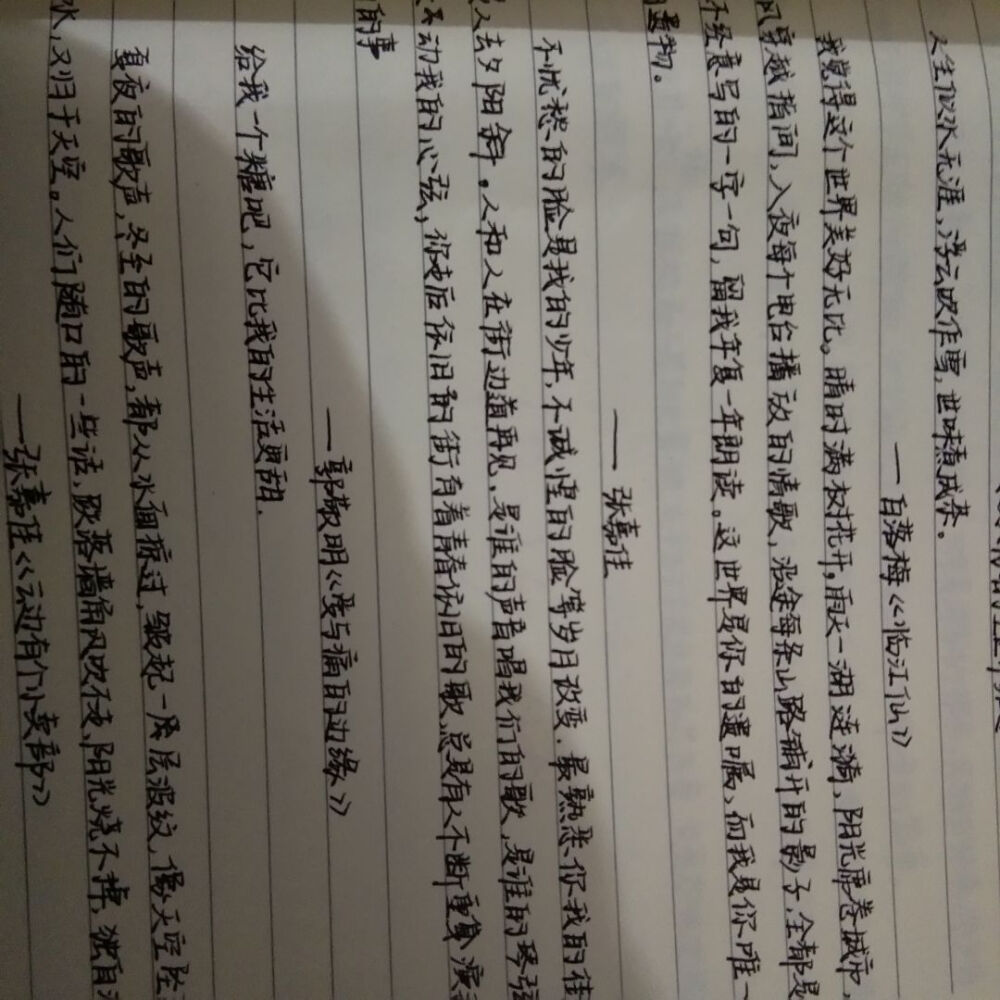 人生似水无涯，浮云吹作雪，世味煮成茶。
——白落梅《临江仙》
我觉得这个世界美好无比。晴时满树花开，雨天一湖涟漪，阳光席卷城市，
风穿越指间，入夜每个电台播放的情歌，沿途每条山路铺开的影子，全都是
不经意写的一字一句，留我年复一年朗读。这世界是你的遗嘱，而我是你唯一
的遗物。
——张嘉佳
不忧愁的脸是我的少年，不诚惶的脸等岁月改变，最熟悉你我的街
人去夕阳斜，人和人在街边道再见，是谁的声音唱我们的歌，是谁的琴弦
动我的心弦，你走后依旧的街有着青春依旧的歌，总是有人不断重复演
的事
——郭敬明《爱与痛的边缘》
给我一个糖吧，它比我的生活更甜.
夏夜的歌声，冬至的歌声，都从水面掠过，皱起一层层波纹，像天空坠
水，又归于天空。人们随口的一些话，跌落墙角，风吹不走，阳光烧不掉，独自
——张嘉佳《云边有个小卖部》